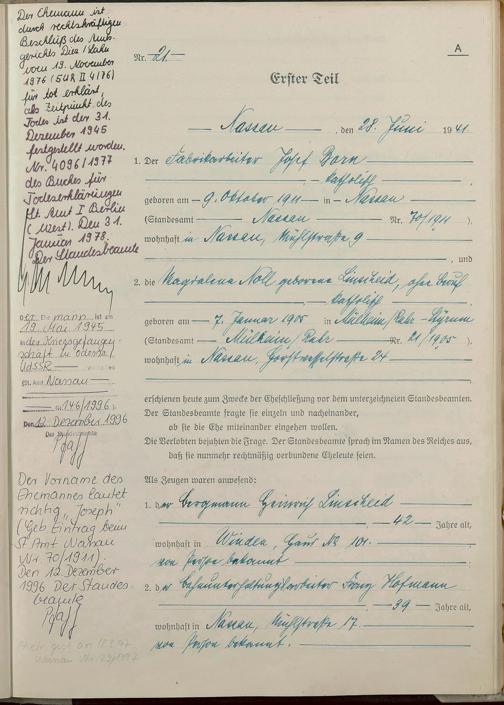 Der Ehemann ist
durch rechtskräftigen
Beschluß des Amts-
gerichts Diez/Lahn
vom 19. November
1976 (5 UR II 4/76)
für tot erklärt,
als Zeitpunkt des
Todes ist der 31.
Dezember 1945
festgestellt worden.
Nr. 4096/1977
des Buches für
Todeserklärungen
St. Amt I Berlin
(West). Den 31.
Januar 1978.
Der Standesbeamte
mann ist am
19. Mai 1945
in der Kriegsgefangen-
schaft in Odessa/
UdSSR
Nassau
146/1996
Den 12. Dezember 1996
Pfaff
Der Vorname des
Ehemannes lautet
richtig "Joseph"
(Geb. Eintrag beim
St. Amt Nassau
Nr. 70/1911).
Den 12. Dezember
1996 Der Standes-
beamte
Pfaff
A
Nr. 21
Erster Teil
Nassau, den 28. Juni 1941
1. Der Fabrikarbeiter Josef Born
katholisch
geboren am 9. Oktober 1911 in Nassau
(Standesamt Nassau Nr. 70/1911)
wohnhaft in Nassau, Mühlstraße 9
, und
2. die Magdalena Noll geborene Linscheid, ohne Beruf
katholisch
geboren am 7. Januar 1905 in Mülheim/Ruhr-Styrum
(Standesamt Mülheim/Ruhr Nr. 21/1905)
wohnhaft in Nassau, Horstwesselstraße 24
erschienen heute zum Zwecke der Eheschließung vor dem unterzeichneten Standesbeamten.
Der Standesbeamte fragte sie einzeln und nacheinander,
ob sie die Ehe miteinander eingehen wollen.
Die Verlobten bejahten die Frage. Der Standesbeamte sprach im Namen des Reiches aus,
daß sie nunmehr rechtmäßig verbundene Eheleute seien.
Als Zeugen waren anwesend:
1. der Bergmann Heinrich Linscheid
, 42 Jahre alt,
wohnhaft in Winden, Haus Nr. 101.
von Person bekannt
2. der Bahnunterhaltungsarbeiter Hofmann
, 39 Jahre alt,
wohnhaft in Nassau, Mühlstraße 17.
von Person bekannt.